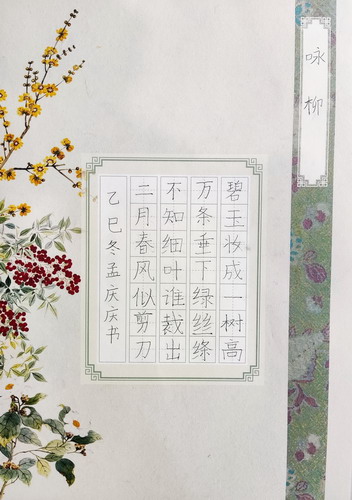 咏柳
碧玉妆成一树高
万条垂下绿丝绦
不知细叶谁裁出
二月春风似剪刀
乙巳冬孟庆庆书